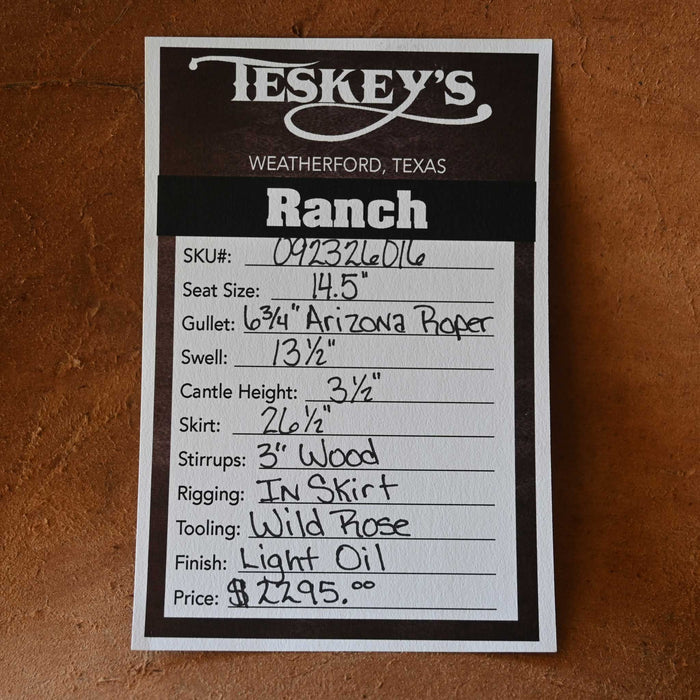 TESKEY'S
WEATHERFORD, TEXAS
Ranch
SKU#: 092326016
Seat Size: 14.5"
Gullet: 6 3/4" Arizona Roper
Swell: 13 1/2"
Cantle Height: 3 1/2"
Skirt: 26 1/2"
Stirrups: 3" Wood
Rigging: In Skirt
Tooling: Wild Rose
Finish: Light Oil
Price: $2295.00